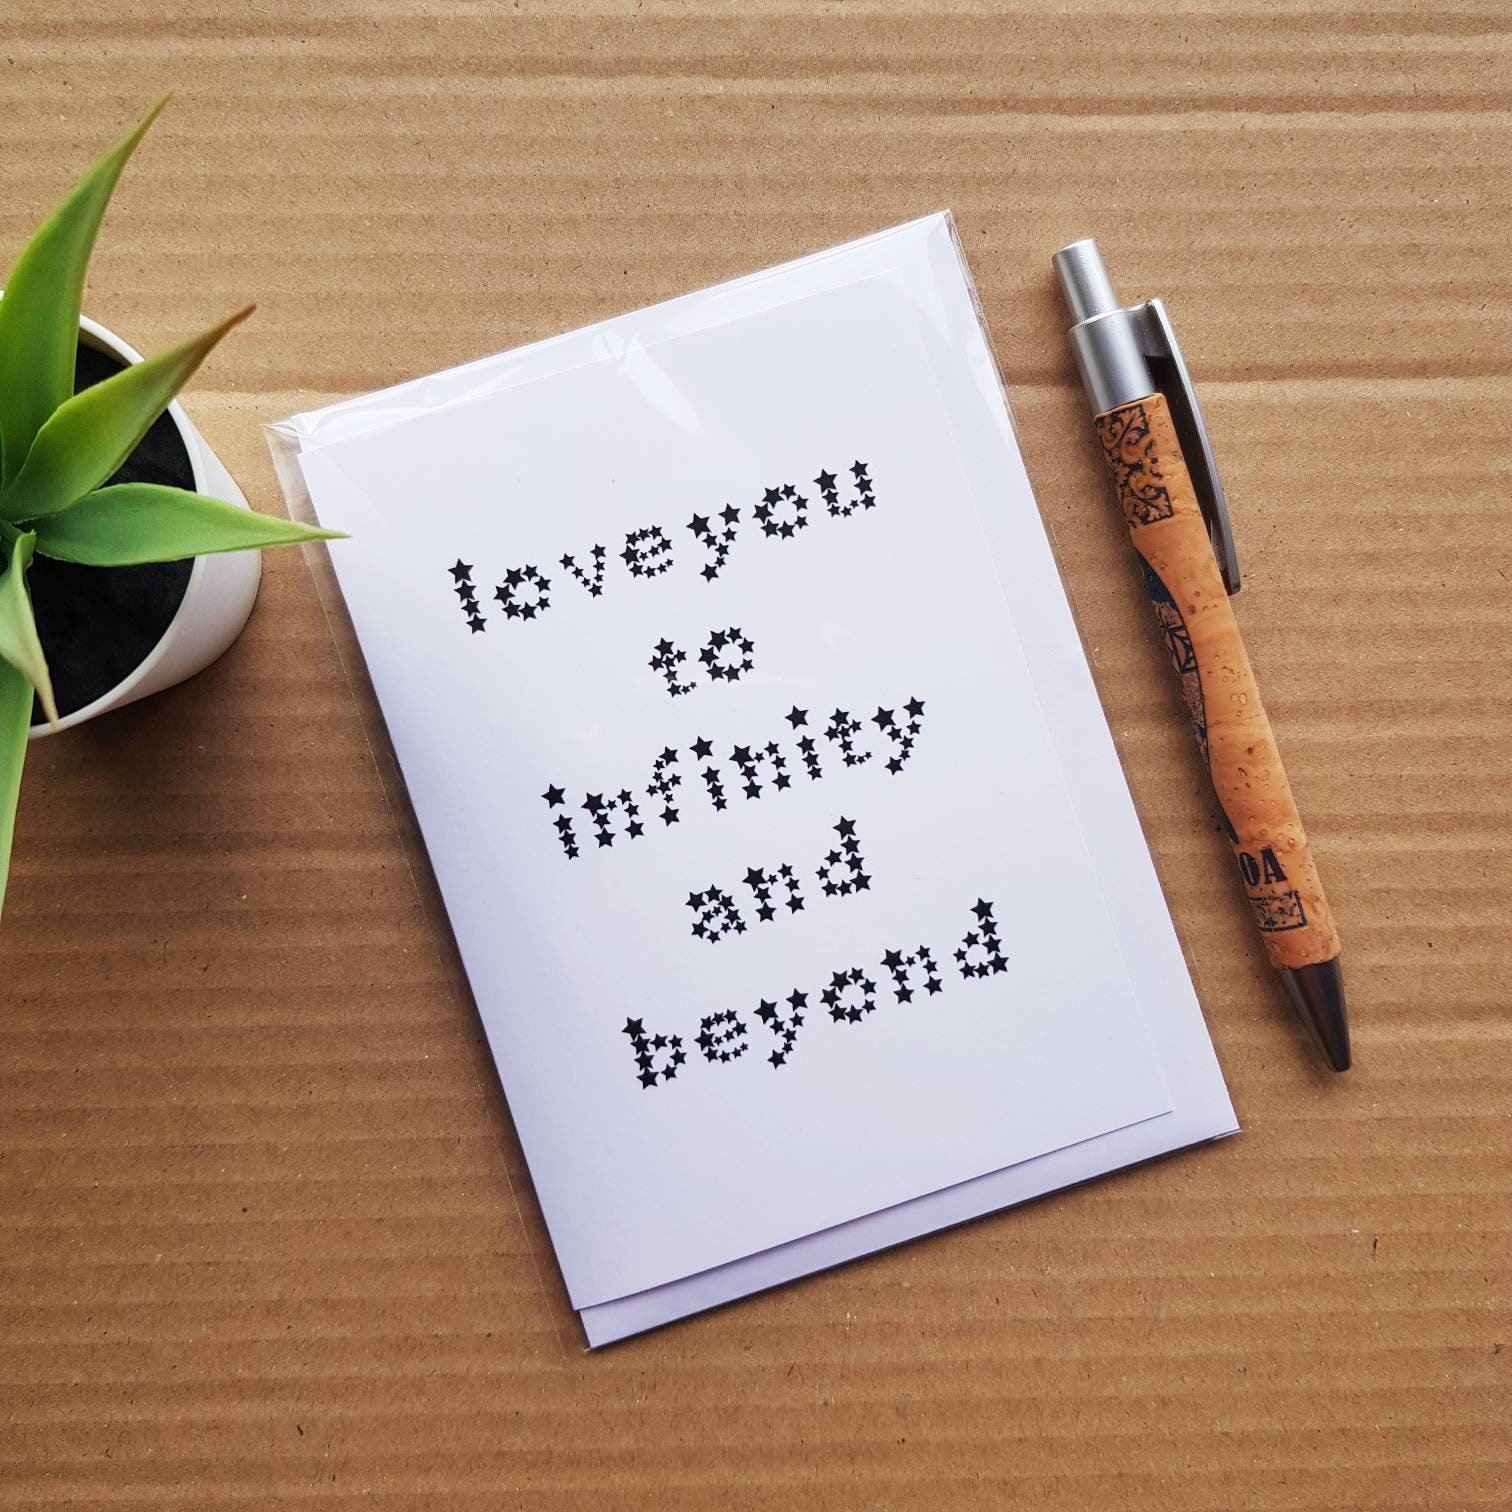 love you
to
infinity
and
beyond
OA